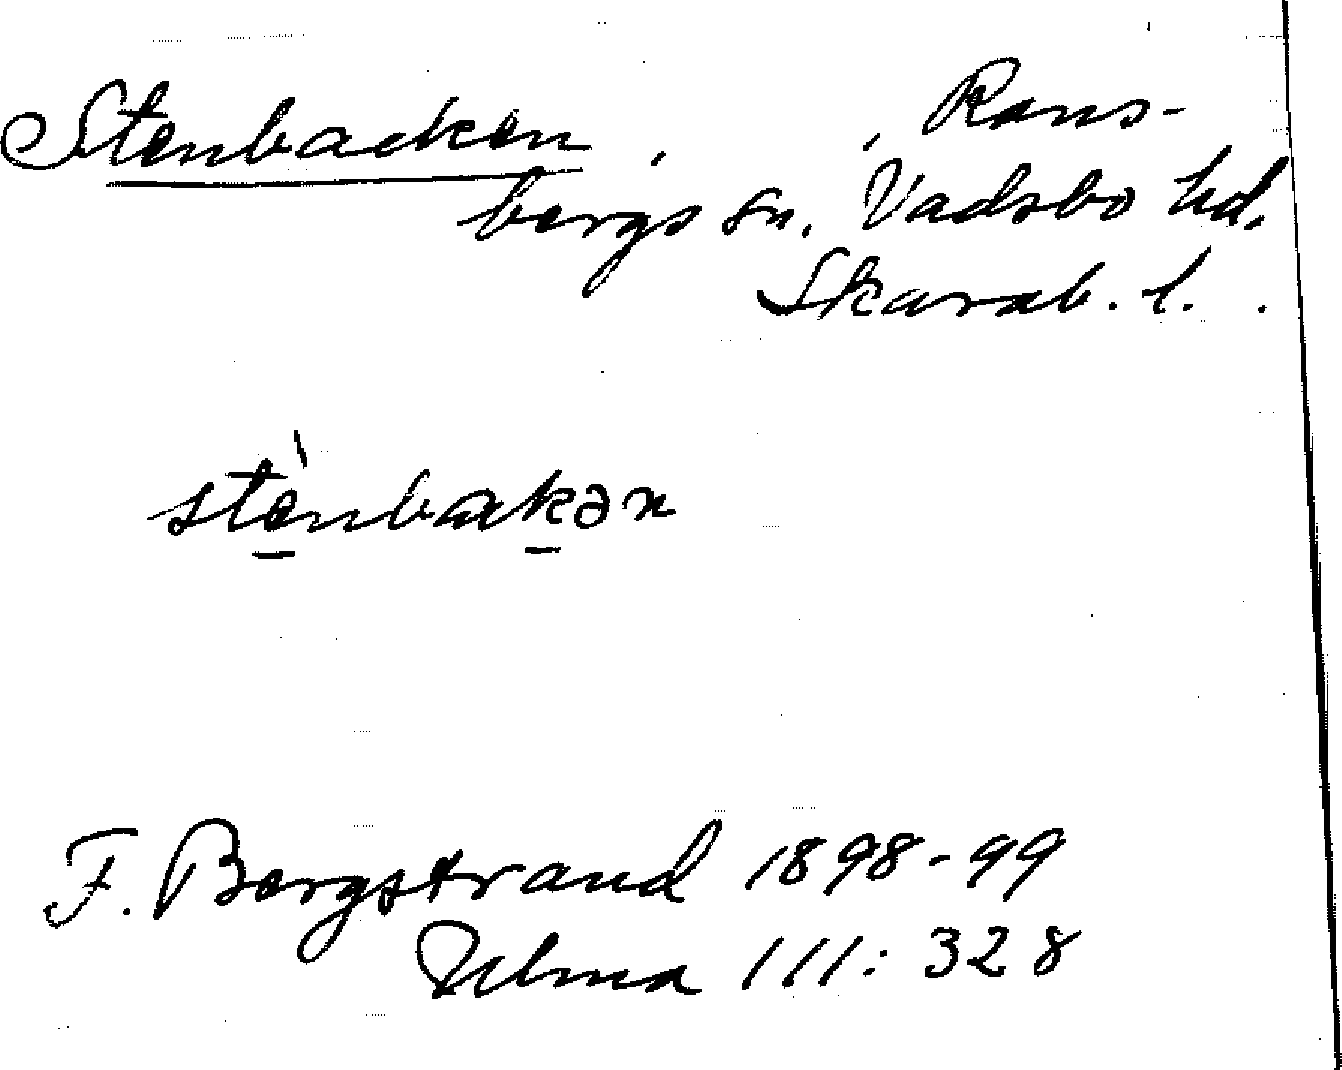 Stenbacken, , Rans-
bergs sn. Vadsbo hd.
Skarab. l. .
stènbakən
F. Bergstrand 1898-99
Ulma 111:328